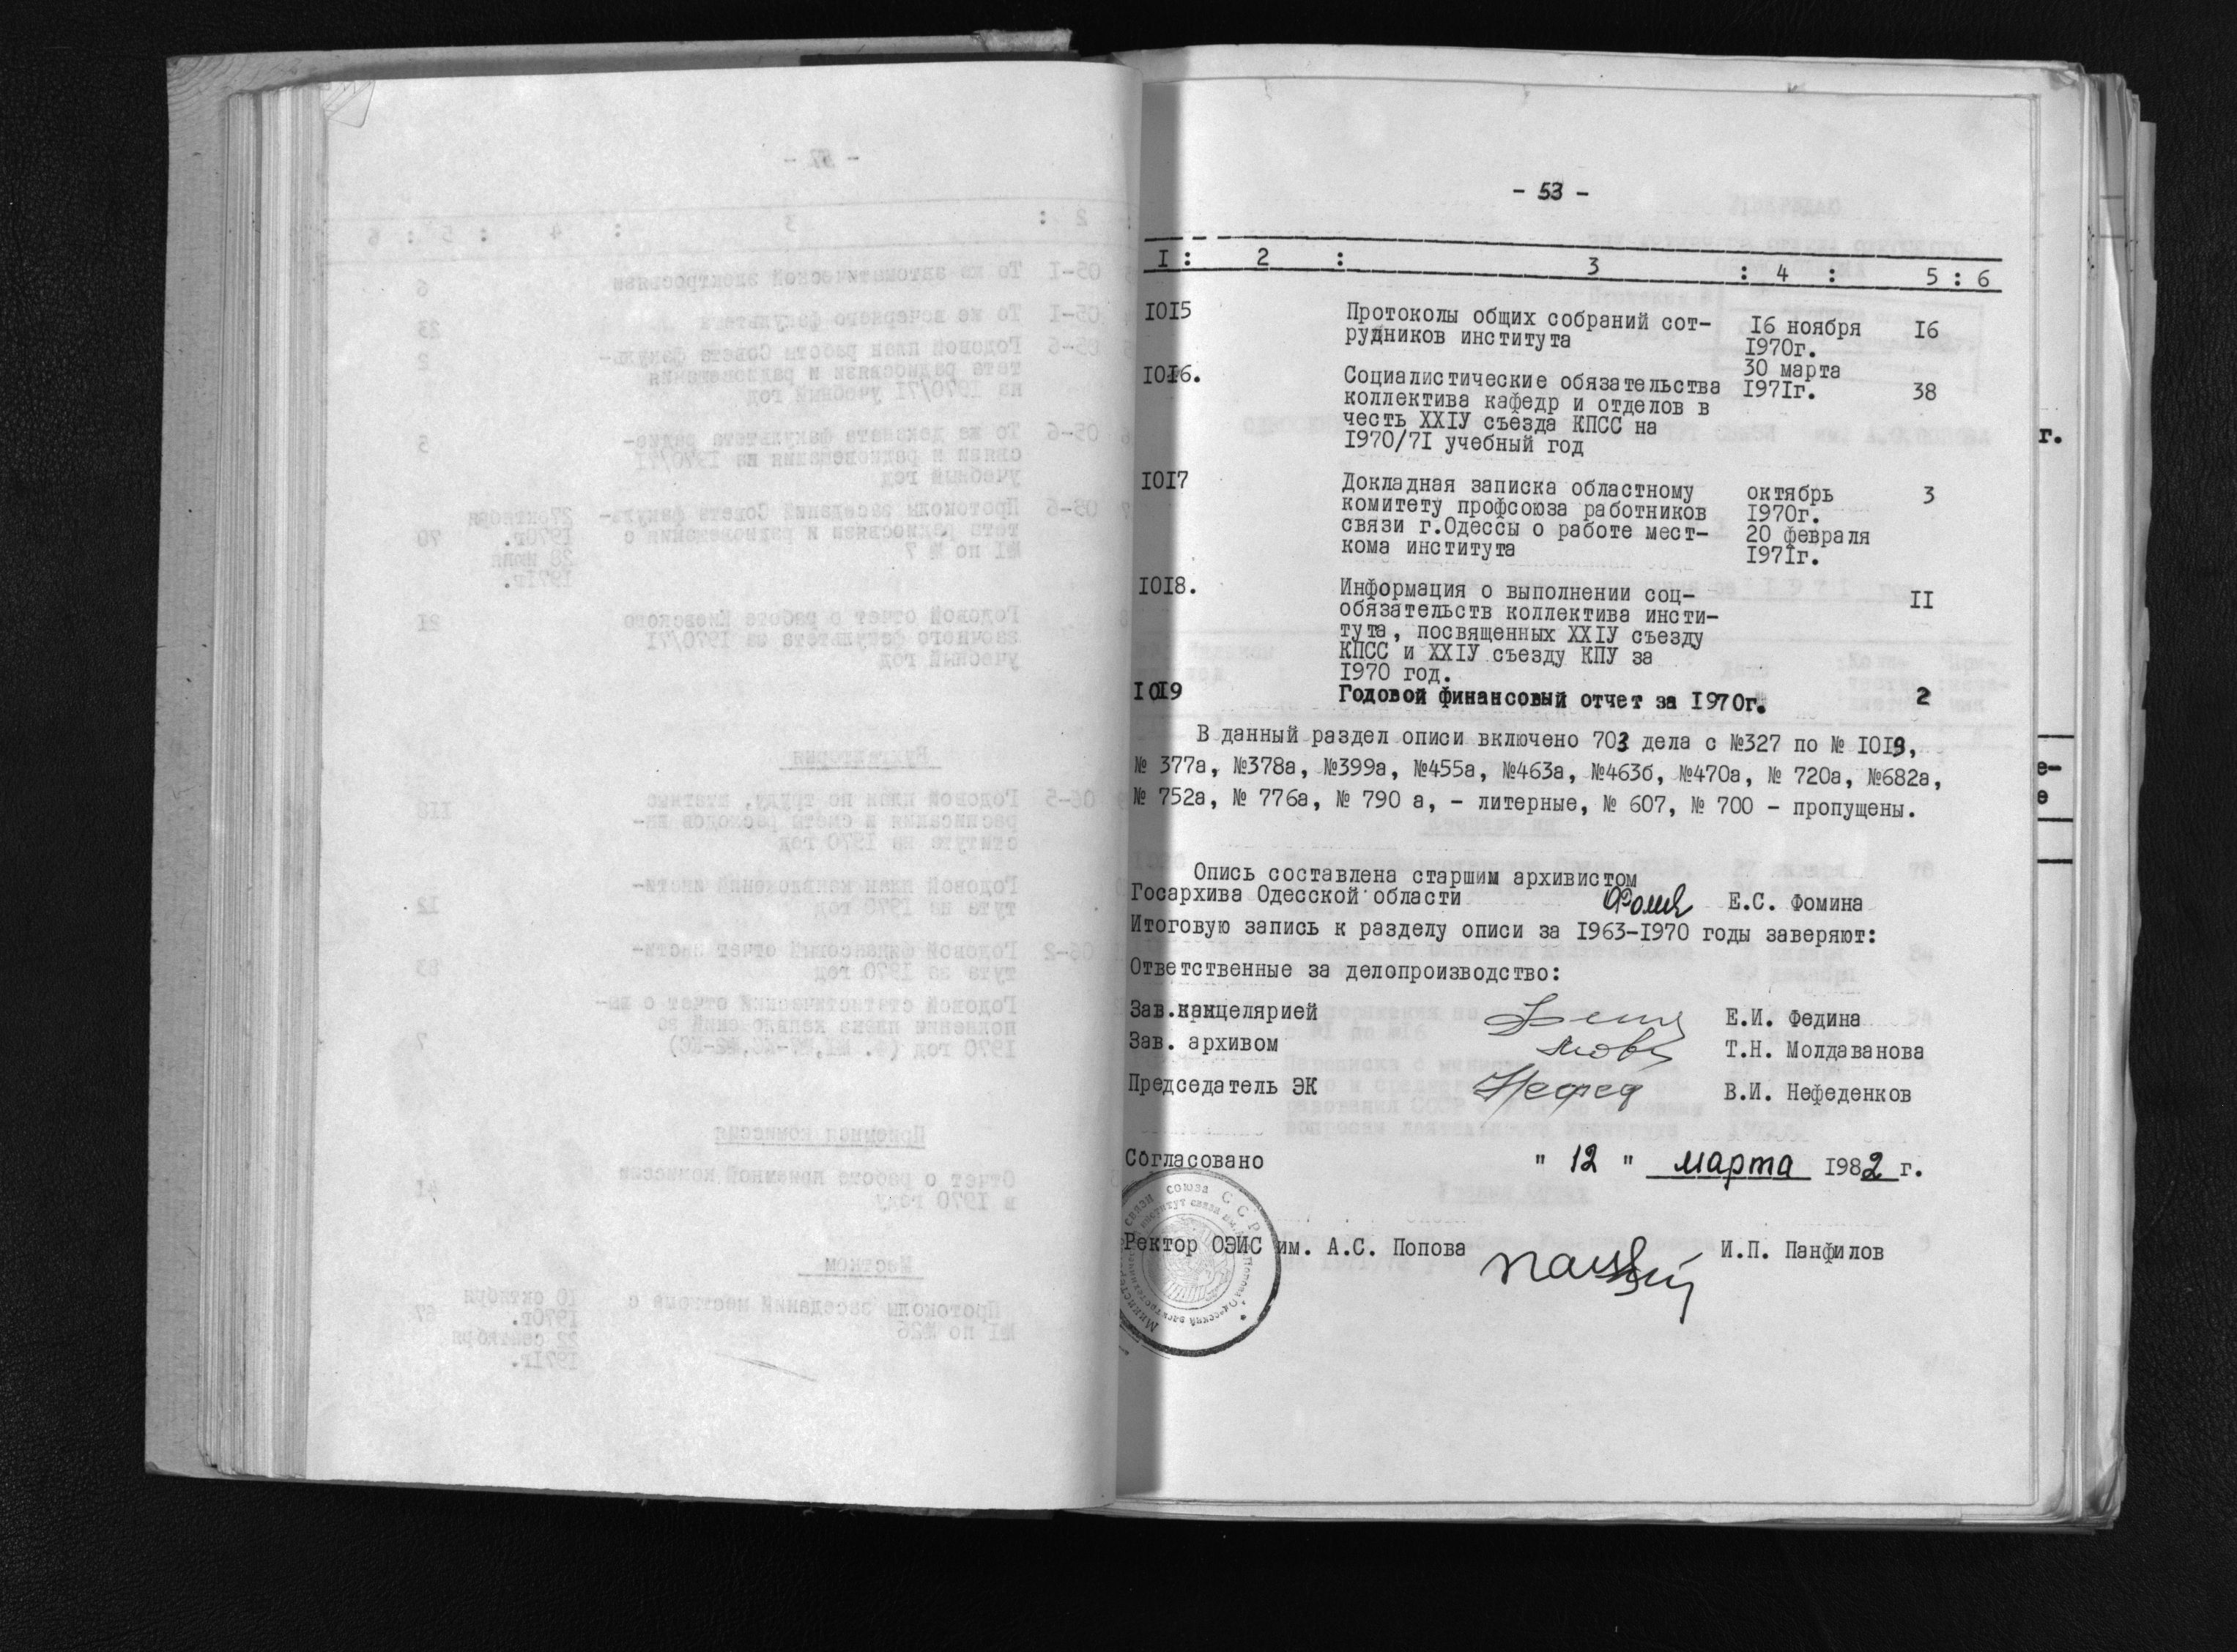 - 53 -
I : 2 : 3 : 4 : 5 : 6
IOI5 Протоколы общих собраний сот- I6 ноября I6
рудников института I970г.
30 марта
IOI6. Социалистические обязательства I97Iг. 38
коллектива кафедр и отделов в
честь XXIУ съезда КПСС на
I970/7I учебный год
IOI7 Докладная записка областному октябрь 3
комитету профсоюза работников I970г.
связи г.Одессы о работе мест- 20 февраля
кома института I97Iг.
IOI8. Информация о выполнении соц- II
обязательств коллектива инсти-
тута, посвященных XXIУ съезду
КПСС и XXIУ съезду КПУ за
I970 год.
IOI9 Годовой финансовый отчет за I970г. 2
В данный раздел описи включено 703 дела с №327 по № IOI9,
№ 377а, №378а, №399а, №455а, №463а, №463б, №470а, № 720а, №682а,
№ 752а, № 776а, № 790 а, - литерные, № 607, № 700 - пропущены.
Опись составлена старшим архивистом
Госархива Одесской области Е.С. Фомина
Итоговую запись к разделу описи за I963-I970 годы заверяют:
Ответственные за делопроизводство:
Зав.канцелярией Е.И. Федина
Зав. архивом Т.Н. Молдаванова
Председатель ЭК Нефед В.И. Нефеденков
Согласовано " 12 " марта I982 г.
Ректор ОЭИС им. А.С. Попова И.П. Панфилов
г.
е-
е